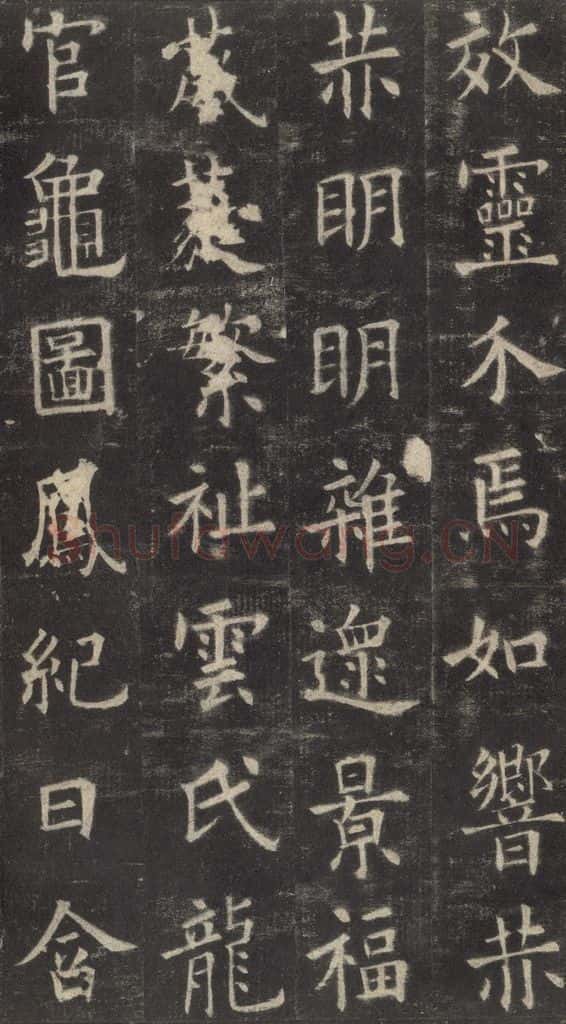 效靈介焉如響赫
赫明明雜遝景福
葳蕤繁祉雲氏龍
官龜圖鳳紀日含
shufawang.CN